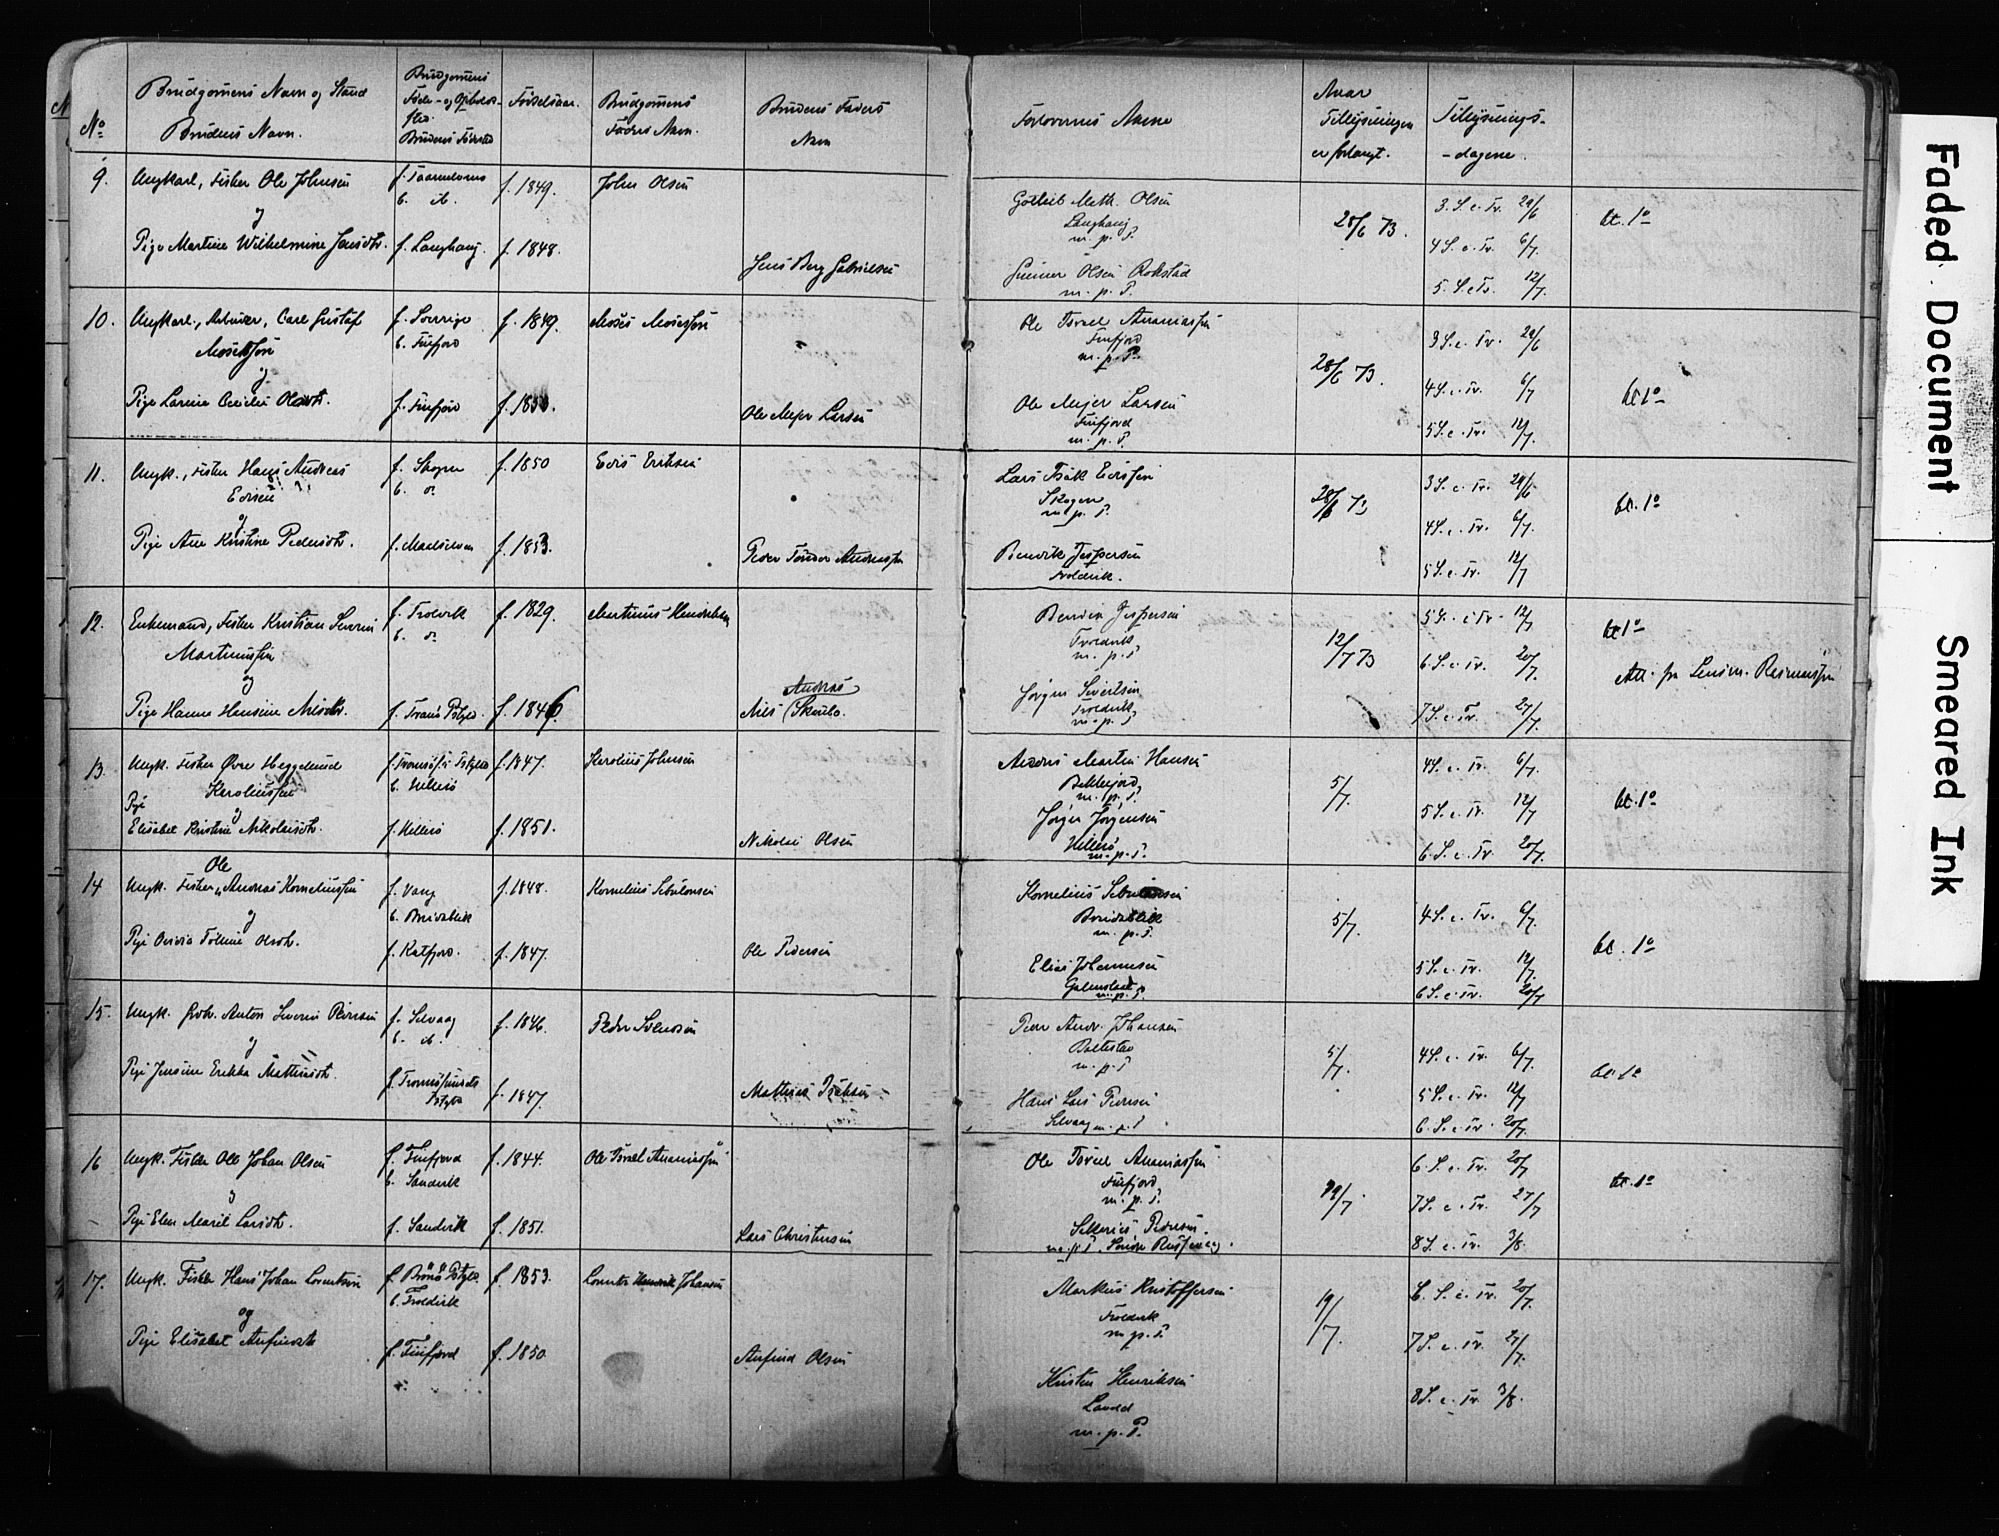 No
Brudgomens Navn og Stand
Brudens Navn.
Brudgomens
Føde- og Opholds-
sted.
Brudens Fødested
Fødselsaar.
Brudgomens
Faders Navn.
Brudens Faders
Navn
Forlovernes Navne
Naar
Tillysningen
er forlangt.
Tillysnings-
-dagene.
9.
Ungkarl, Fisker Ole Johnsen
og
Pige Martine Wilhelmine Jensdtr.
b. ib.
f. Laughaug.
f. 1849.
f. 1848.
John Olsen
Jens Berg Gabrielsen
Gotlieb Math. Olsen
Laughaug
m. p. P.
Gunner Olsen Rokstad
m. p. P.
28/6 73.
3. S. e. Tr. 29/6
4 S. e. Tr. 6/7.
5. S. e. Tr. 12/7.
bt. 1o
10.
Ungkarl., Arbeider, Carl Gustaf
Mosesson
og
Pige Larine Cecilie Olsdtr.
f. Sverrige
b. Finfjord
f. Finfjord
f. 1849.
Moses Mosesson
Ole Mejer Larsen
Ole Israel Ananiassen
Finfjord
m. p. P.
Ole Mejer Larsen
Finfjord
m. p. P.
28/6 73.
3 S. e. Tr. 29/6
4 S. e. Tr. 6/7
5 S. e. Tr. 12/7.
bt 1o
11.
Ungk., Fisker Hans Andreas
Edisen
og
Pige Ane Kristine Pedersdtr.
f. Skogen
b. do
f. 1850
f. 1853.
Edis Eriksen
Peder Tønder Andreassen
Lars Isak Edissen
Skogen
m. p. P.
Bendik Jespersen
Troldvik.
28/6 73
3 S. e. Tr. 29/6
4 S. e. Tr. 6/7.
5 S. e. Tr. 12/7
bt. 1o
12.
Enkemand, Fisker Kristian Severin
Martinussen
og
Pige Hanna Hansine Nilsdtr.
f. Troldvik
b. do
f. Tranø Pstgd.
f. 1829.
f. 1846.
Martinus Hendriksen
Andreas
Nils Skanbo.
Bendik Jespersen
Troldvik
m. p. P.
Jørgen Sivertsen
Troldvik
m. p. P.
12/7 73
5 S. e. Tr. 12/7
6. S. e. Tr. 20/7.
7 S. e. Tr. 27/7.
bt 1o
Att. fra Lensm. Rasmussen
13.
Ungk. Fisker Øvre Heggelund
Karoliussen
og
Pige
Elisabet Kristine Nikolaisdtr.
f. Tromsøs Pstgld
b. Hillesø
f. Hillesø
f. 1847.
f. 1851.
Karolius Johnsen
Nikolai Olsen
Anders Martin Hansen
Bakkejord
m. p. P.
Jørgen Jørgensen
Hillesø
m. p. P.
5/7.
4 S. e. Tr. 6/7.
5 S. e. Tr. 12/7
6. S. e. Tr. 20/7.
bt. 1o
14
Ole
Ungk. Fisker Andreas Korneliussen
og
Pige Olsdtr.
f. Vang
b. Bredablik
f. Katfjord.
f. 1848.
f. 1847.
Kornelius Sebulonsen
Ole Pedersen
Kornelius Sebulonsen
Bredablik
m. p. P.
Elias Johannesen
m. p. P.
5/7.
4 S. e. Tr. 6/7.
5 S. e. Tr. 12/7.
6 S. e. Tr. 20/7
bt. 1o
15.
Ungk. Gbr. Anton Severin Pedersen
og
Pige Jensine Erikka Mattiasdtr.
f. Selvaag
b. ib.
f. Tromsøsunds
Pstgld
f. 1846.
f. 1847.
Peder Svendsen
Mattias Isaksen
Peder Andr. Johansen
m. p. P
Hans Lars Pedersen
Selvaag m. p. P
5/7.
4 S. e. Tr. 6/7.
5 S. e. Tr. 12/7
6. S. e. Tr. 20/7.
bt 1o
16
Ungk. Fisker Ole Johan Olsen
og
Pige Elen Marie Larsdtr.
f. Finfjord
b. Sandvik
f. Sandvik
f. 1844.
f. 1851.
Ole Isrel Ananiassen
Lars Christensen
Ole Israel Ananiassen
Finfjord
m. p. P.
m. p. P.
19/7.
6. S. e. Tr. 20/7
7 S. e. Tr. 27/7
8 S. e. Tr. 3/8.
bt. 1o
17.
Ungk. Fisker Hans Johan Lorentsen
og
Pige Elisabet Anfindsdtr
f. Brønø Pstgld.
b. Troldvik
f. Finfjord
f. 1853.
f. 1850
Lorentz Johansen
Anfind Olsen
Markus Kristoffersen
Troldvik
m. p. P.
Kristen Henriksen
m. p. P.
19/7.
6. S. e. Tr. 20/7.
7 S. e. Tr. 27/7.
8 S. e. Tr. 3/8.
Faded Document
Smeared Ink